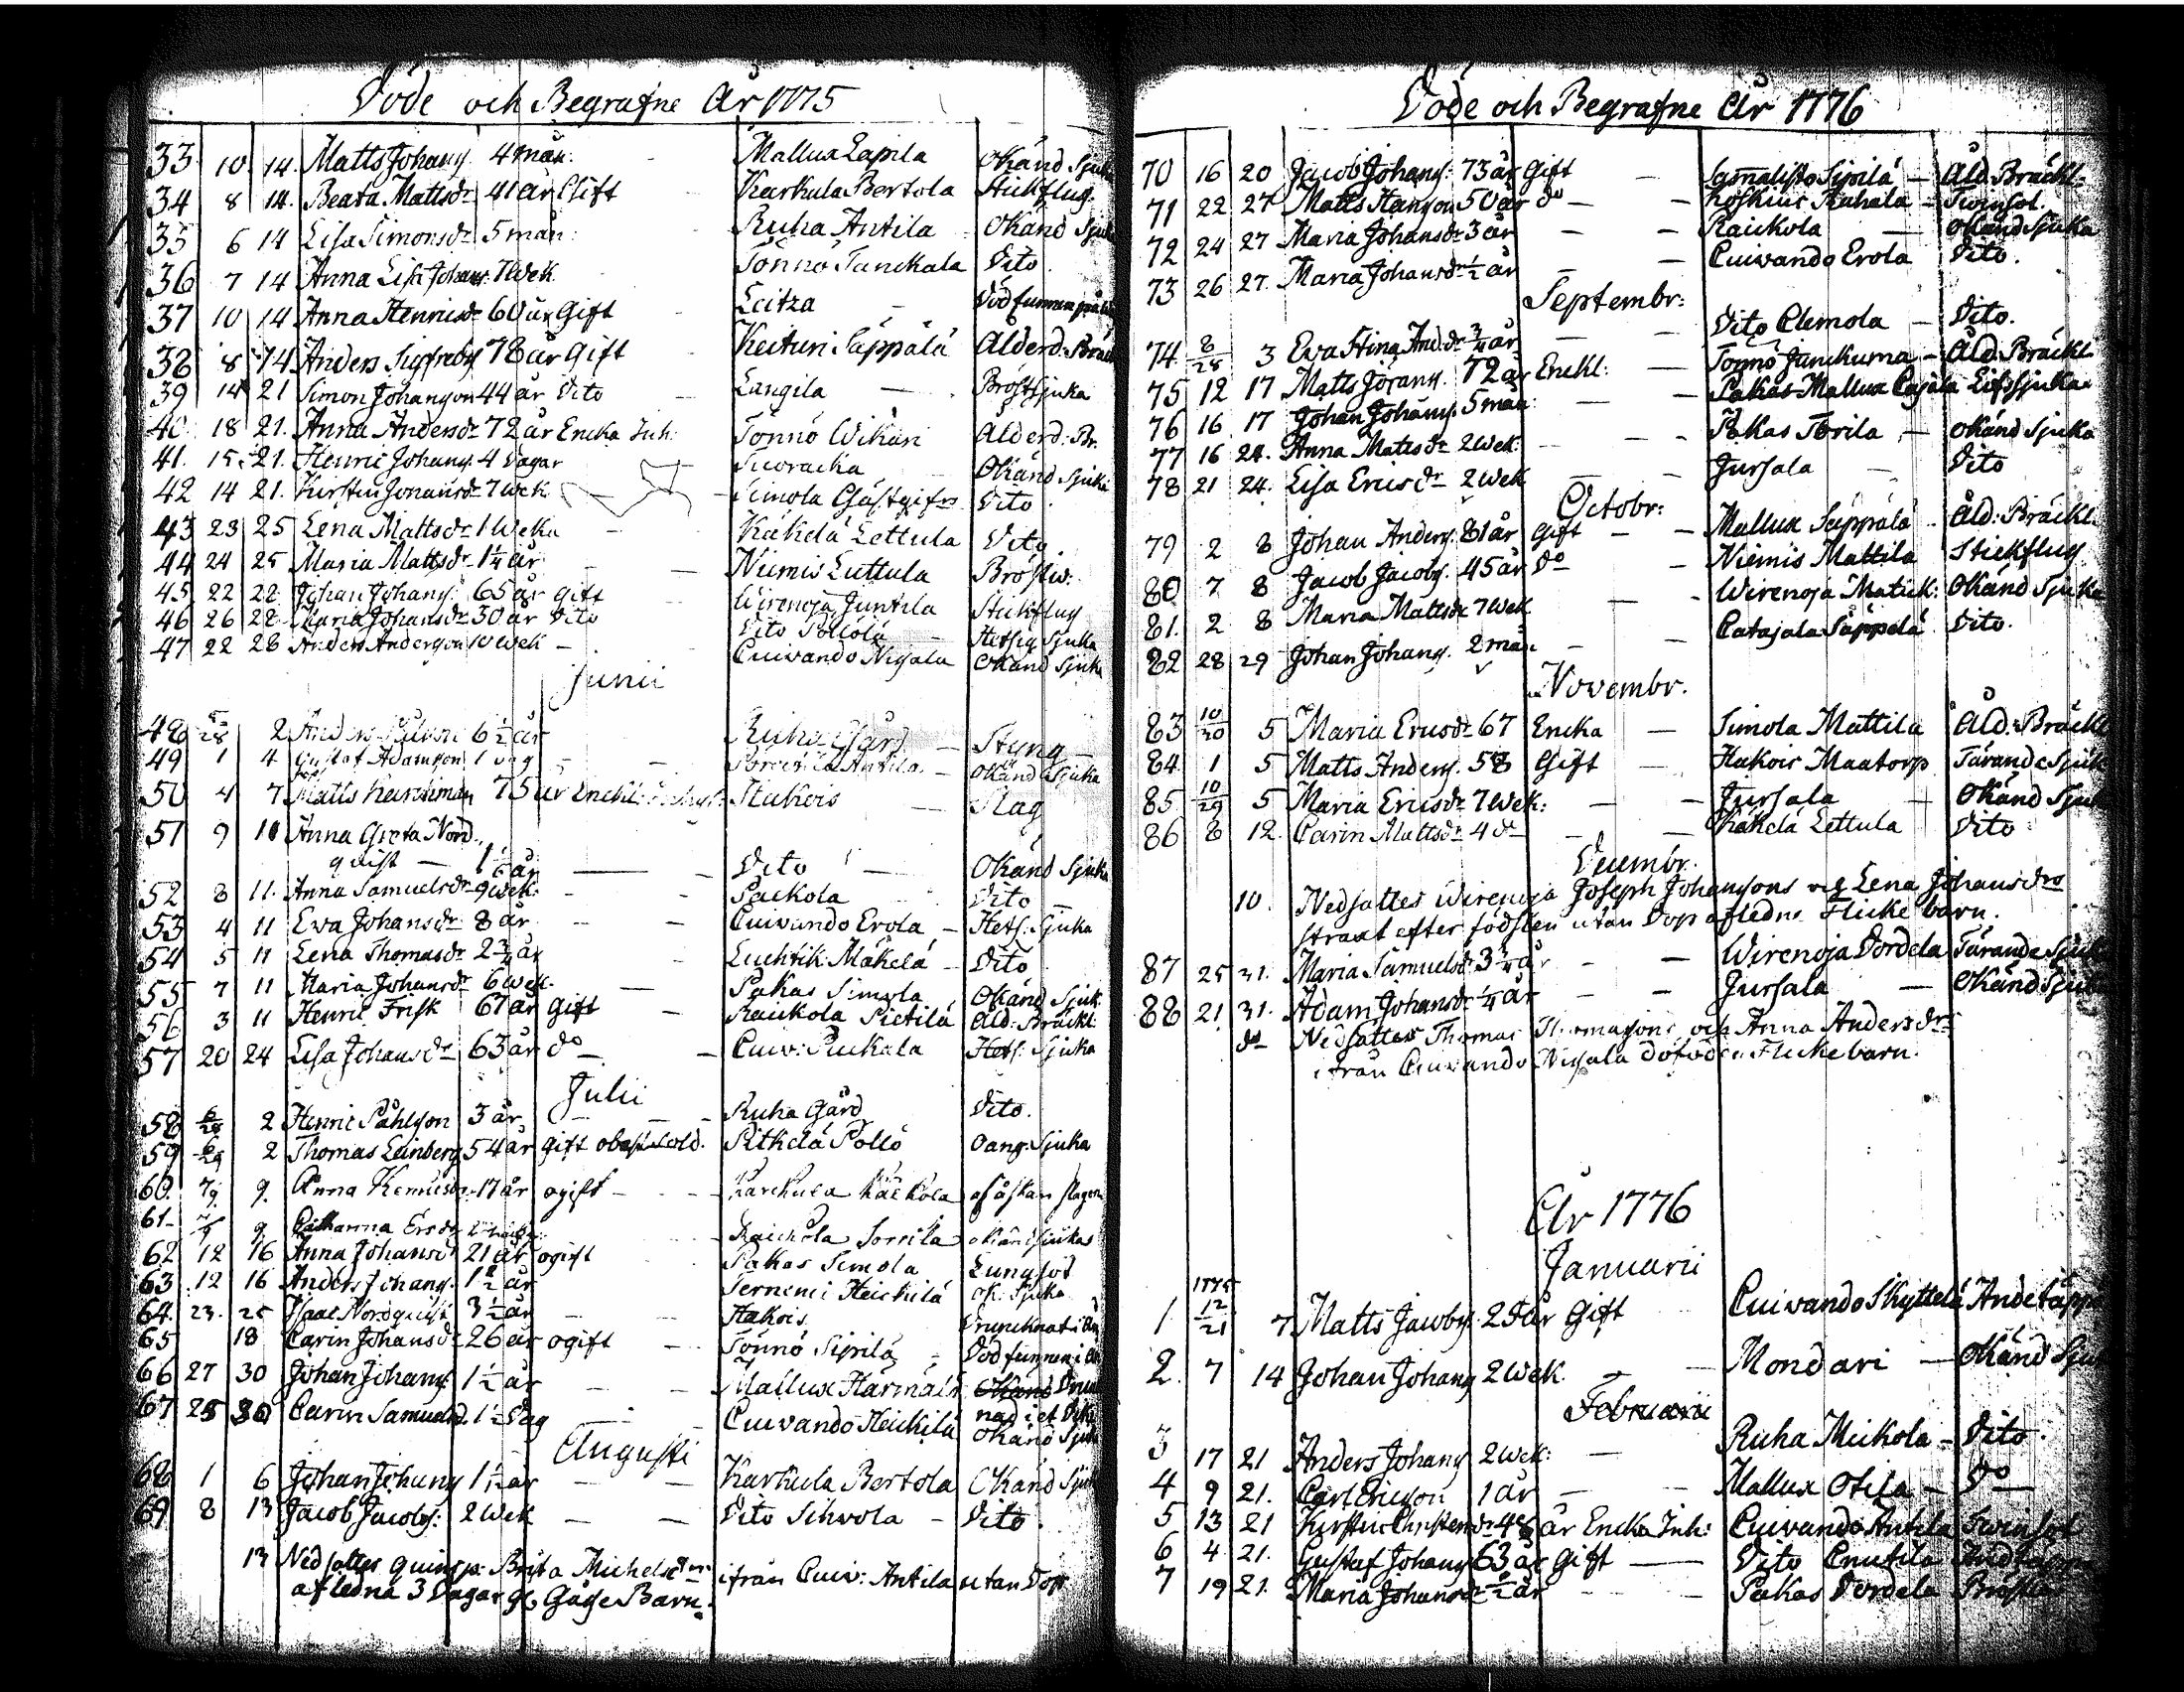 Döde och Begrafne År 1775
33 10 14. Matts Johans. 4 mån: Mallux Lapila Okänd Sjuk
34 8 14. Beata Mattsdr 41 år Gift Karkula Bertola Stickflug.
35 6 14 Lisa Simonsdr 5 mån: Ruha Antila Okänd Sjuk
36 7 14 Anna Lisa Johans 7 Wek Tönnö Tanckala Dito
37 10 14 Anna Henricsdr 60 år Gift Leitza Död funnen på
38 8 14 Anders Sigfreds 78 år Gift Keituri Säppälä Ålderd: Bräck
39 14 21 Simon Johanson 44 år Dito Langila Bröstsjuka
40 18 21. Anna Andersdr 72 år Encka Inh: Tönnö Wikari Ålderd: Br.
41. 15. 21. Henric Johans. 4 Dagar Suoracka Okänd Sjuka
42 14 21. Kirstin Johansdr 7 Wek Simola Gästgifvr Dito
43 23 25 Lena Mattsdr 1 Weka Käkelä Lettula Dito
44 24 25 Maria Mattsdr 1 1/4 år Niemis Luttula Bröstw:
45 22 28 Johan Johans. 65 år gift Wirenoja Juntila Stickflug
46 26 28 Maria Johansdr 30 år Dito Dito Pollola Hetsig Sjuka
47 22 28 Anders Anderson 10 wek Cuivando Nigala Okänd Sjuk
Junii
48 5/28 2 Anders 6 1/2 år Ruha Gård Styng
49 1 4 Gustaf Adamson 1 Dag Antila Okänd Sjuka
50 4 7 Matts 75 år Enckl: Hakois Slag
51 9 10 Anna Greta Nord
quist 1 1/6 år Dito Okänd Sjuka
52 8 11. Anna Samuelsdr 9 Wek: Paekola Dito
53 4 11 Ewa Johansdr 8 år Cuivando Erola Hets: Sjuka
54 5 11 Lena Thomasdr 2 3/4 år Luchtik: Mäkelä Dito
55 7 11 Maria Johansdr 6 wek. Pakas Simola Okänd Sjuk.
56 3 11 Henric Frisk 67 år gift Raickola Pietilä Åld: Bräckl:
57 20 24 Lisa Johansdr 63 år do Cuiv: Puckala Hets: Sjuka
Julii
58 6/28 2 Henric Påhlson 3 år Ruha Gård Dito.
59 6/29 2 Thomas Leinberg 54 år gift Pitkelä Pollö Oang. Sjuka
60. 7/9 9. Anna 17 år ogift Karckula af åskan slagen
61. 9 Catharina Ersdr Raickola okänd sjukas
62 12 16 Anna Johansd 21 år ogift Pakas Simola Lungsot
63 12 16 Anders Johans. 1 1/2 år Ternemi Heickilä Ok: Sjuka
64. 23. 25 Isaac Nordquist 3 1/2 år Hakois. Drunchnat i
65 18 Carin Johansdr 26 år ogift Tönnö Sipilä Död funnen i
66 27 30 Johan Johans 1 1/2 år Mallux Härmälä Okänd Drun
67 25 30 Carin Samuelsd. 1 1/2 Dag Cuivando Heickilä nad i et Okänd Sjuk
Augusti
68 1 6 Johan Johans 1 1/2 år Karkula Bertola Okänd Sjuk
69 8 13 Jacob Jacobs: 2 Wek Dito Sihvola Dito.
13 Nedsattes Brita Michelsdrs ifrån Cuiv: Antila utan Dop
afledna 3 Dagar gl. Gåsse Barn.
Döde och Begrafne År 1776
70 16 20 Jacob Johans: 73 år Gift Sipilä Åld. Bräckl:
71 22 27 Matts Hanson 50 år do Koskius Rahala Twinsot.
72 24 27 Maria Johansdr 3 år Raickola Okänd Sjuka
73 26 27. Maria Johansdr 1/2 år Cuivando Erola Dito.
Septembr:
74 8/28 3 Eva Stina And:dr 3/4 år Dito Clemola Dito.
75 12 17 Matts Jörans. 72 år Enckl: Tönnö Janckuma Åld: Bräckl
76 16 17 Johan Johans. 5 mån: Pakas Mallux Lifssjuka
77 16 24. Anna Mattsdr 2 Wek: Pakas Torila Okänd Sjuka
78 21 24. Lisa Ericsdr 2 Wek Jursala Dito
Octobr:
79 2 8 Johan Anders. 81 år Gift Mallux Säppälä Åld: Bräckl.
80 7 8 Jacob Jacobs. 45 år do Niemis Mattila Stickflug
81. 2 8 Maria Mattsdr 7 Wek Wirenoja Matick: Okänd Sjuka
82 28 29 Johan Johans. 2 mån Catajala Säppelä Dito.
Novembr.
83 10/30 5 Maria Ericsdr 67 Encka Simola Mattila Åld: Bräckl
84 1 5 Matts Anders. 58 Gift Hakois Maatorp Tärande Sjuk
85 10/29 5 Maria Ericsdr 7 Wek: Jursala Okänd Sjuk
86 8 12. Carin Mattsdr 4 do Käkelä Lettula Dito
Decembr.
10. Nedsattes Wirenoja Joseph Johansons och Lena Johansdrs
straxt efter födslen utan Dop afledne Flicke barn.
87 25 31. Maria Samuelsdr 3 3/4 år Wirenoja Dordela Tärande Sjuk
88 21 31. Adam Johansd: 1/4 år Jursala Okänd Sjuk
do Nedsattes Thomas Thomasons och Anna Andersdrs
ifrån Cuivando Nigala dödfödda Flickebarn.
År 1776
Januarii
1775
1 12/21 7 Matts Jacobs. 25 år Gift Cuivando Skyttelä Andetäpp
2. 7 14 Johan Johans 2 wek. Mondari Okänd Sjuk
Februarii
3 17 21 Anders Johans 2 wek: Ruha Mickola Dito.
4 9 21. Carl Ericson 1 år Mallux Otila Do
5 13 21 Kirstin Christersdr 48 år Encka Inh: Cuivando Antila Twinsot
6 4 21. Gustaf Johans 63 år gift Dito Cnutila Andtäppa
7 19 21. Maria Johansdr 1/2 år Pakas Dordela